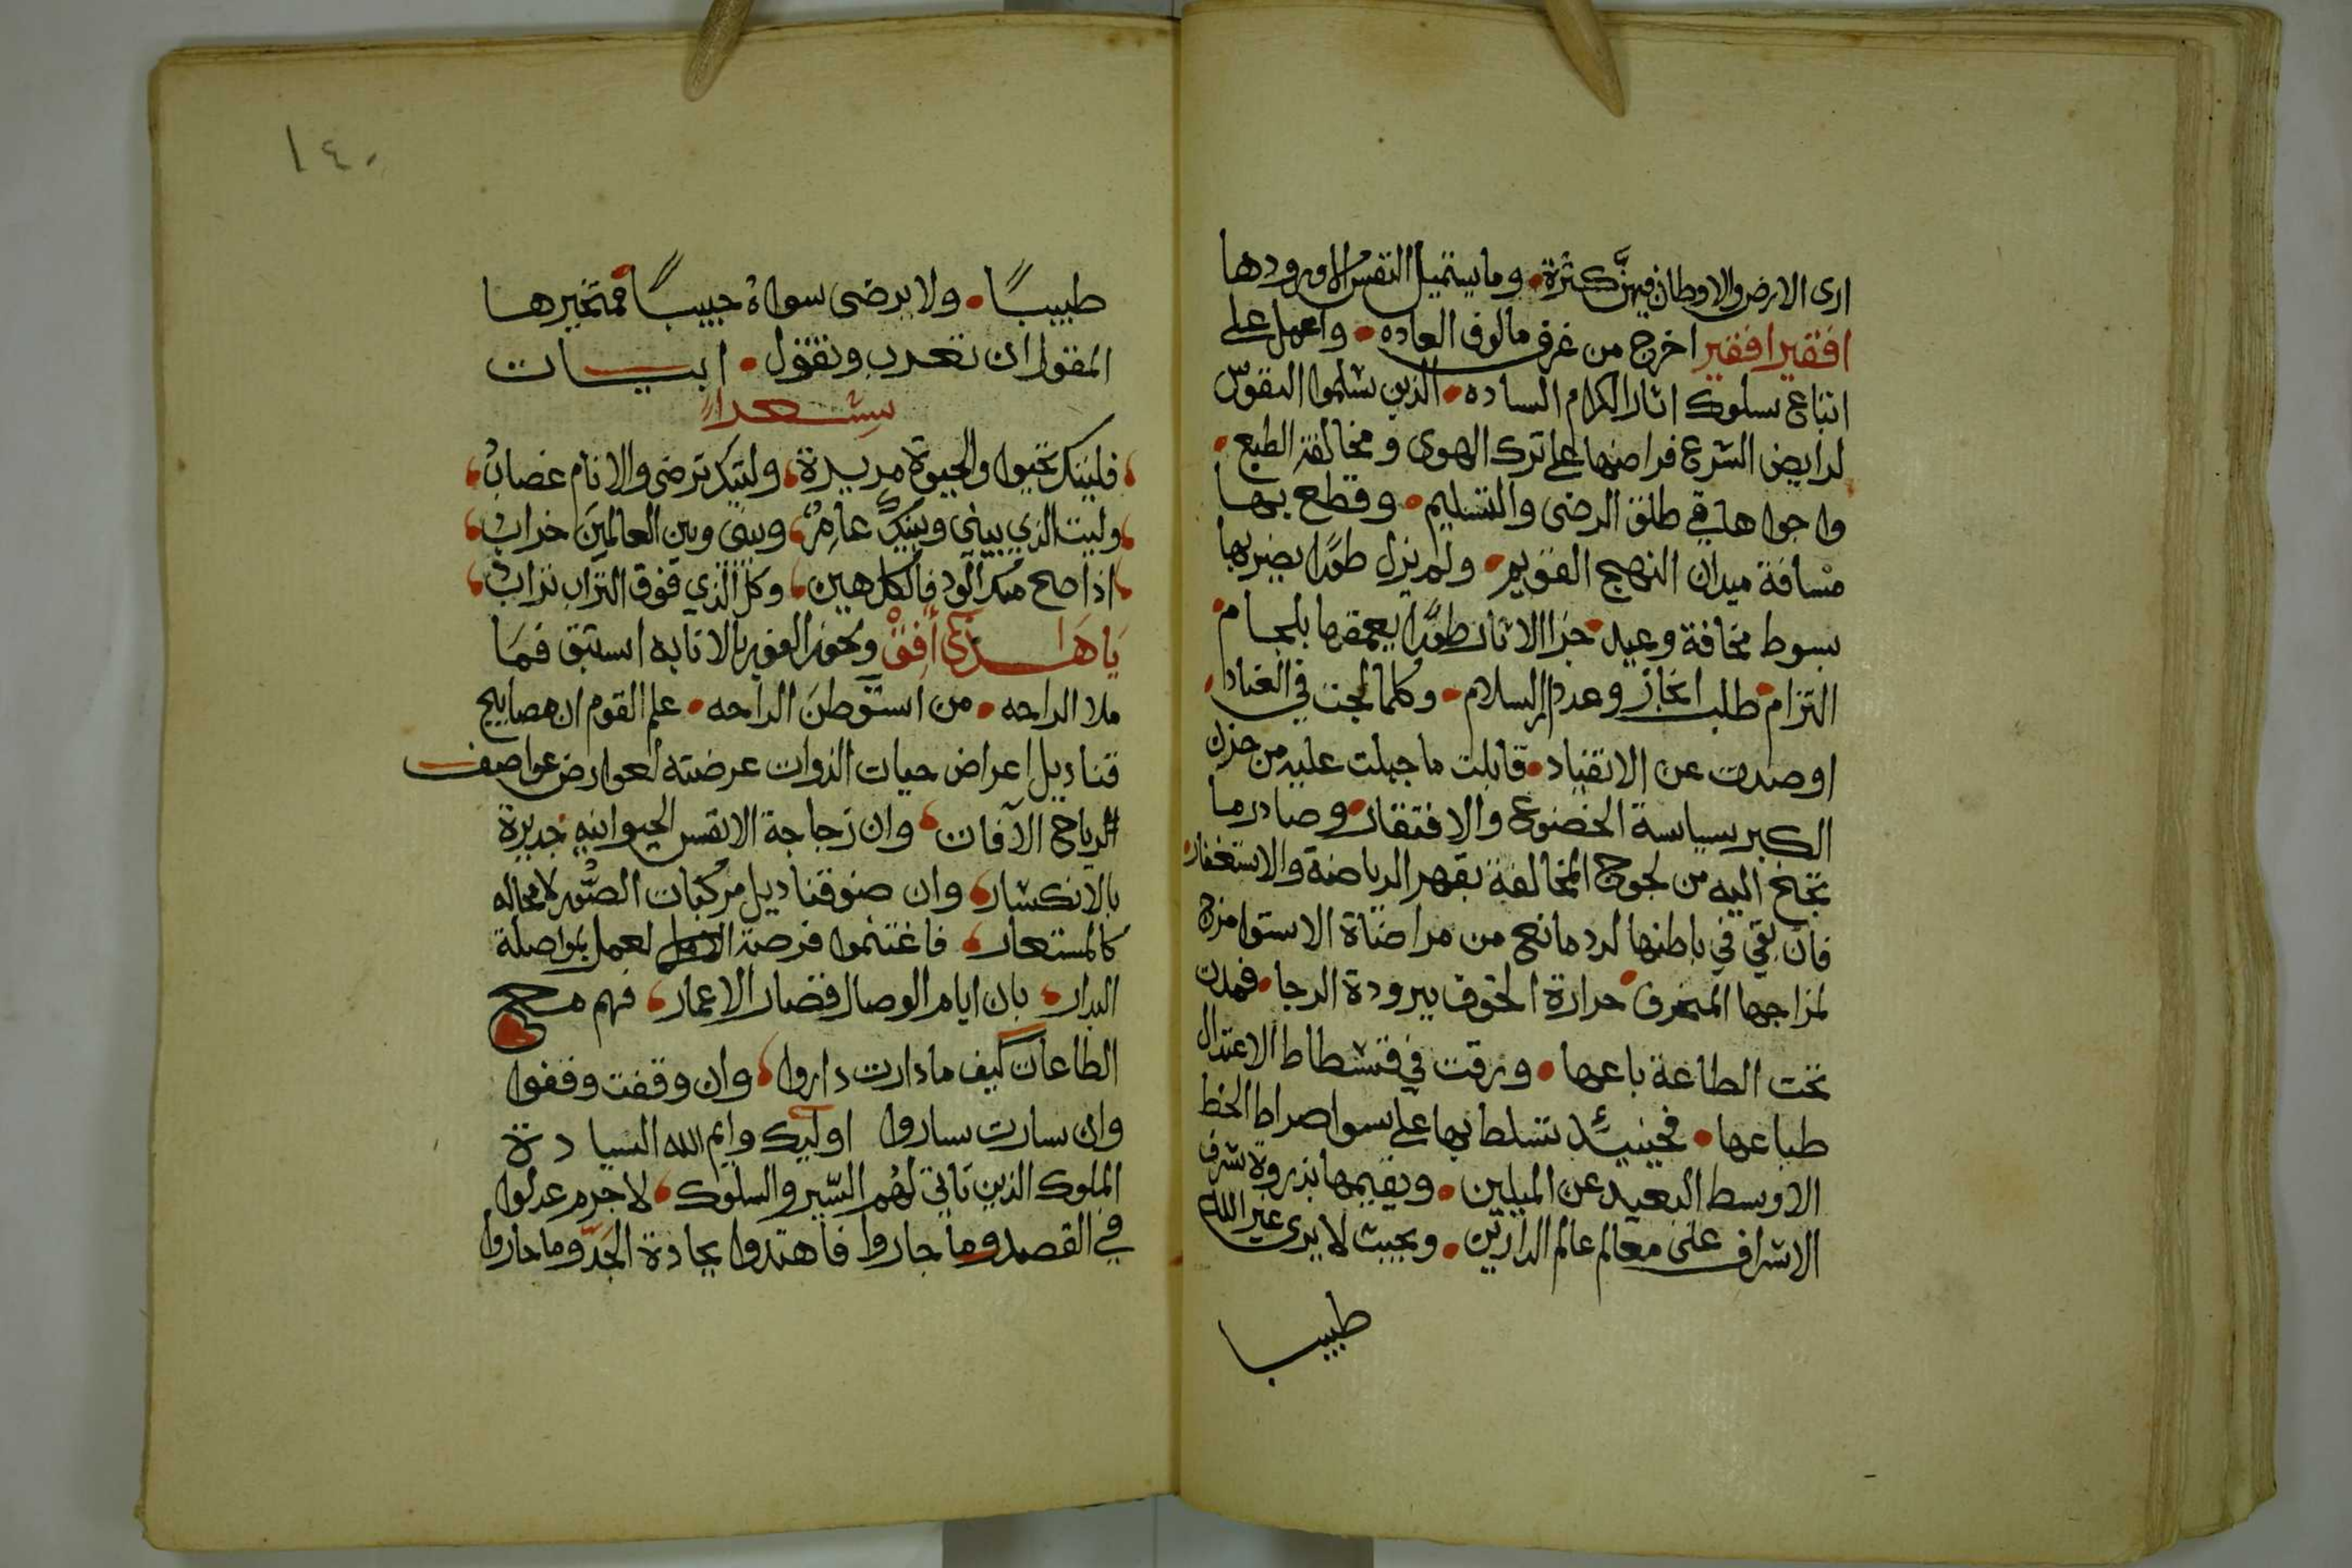 ارى الارض والاوطان فيهنّ كثرة • وما يستميل النفس الا ورودها
افقير افقير اخرج من غرف مالوف العاده • واعمل على
اتباع سلوك اثار الكرام الساده • الذين سلموا النفوس
لرايض الشرع فراضها على ترك الهوى ومخالفة الطبع •
واجراها في طلق الرضى والتسليم • وقطع بها
مسافة ميدان النهج القويم • ولم يزل طورًا يضربها
بسوط مخافة وعيد جزا الاثار طورًا يعمقها بلجام
التزام طلب انجاز وعد دار السلام • وكلما لجت في العناد
او صدت عن الانقياد • قابلت ما جبلت عليه من حزن
الكبر بسياسة الخضوع والافتقار • وصادر ما
تجنح اليه من لجوج المخالفة بقهر الرياضة والاستغفار •
فان بقي في باطنها لرد مانع من مراضاة الاستوا مزج
لمزاجها المنحرف حرارة الخوف ببرودة الرجا • فمدت
تحت الطاعة باعها • ورقت في قسطاط الاعتدال
طباعها • فحينيئذ تسلط بها على سوا صراط الخط
الاوسط البعيد عن الميلين • ويقيمها بذروة شرف
الاشراف على معالم عالم الدارين • وبحيث لا يرى غير الله
طبيبا
١٤٠
طبيبًا • ولا يرضى سواه حبيبًا فمتخيرها
المقول ان تعرب وتقول • ابيات
شعرا
فليتك تحلوا والحيوة مريرة، وليتك ترضى والانام غضاب،
وليت الذي بيني وبينك عامر، وبيني وبين العالمين خراب،
اذا صح منك الود فالكل هين، وكل الذي فوق التراب تراب،
يا هذا أفق ونحو الفوز بالانابه استبق فما
ملا الراحه • من استوطن الراحه • علم القوم ان مصابيح
قناديل اعراض حيات الذوات عرضته لعوارض عواصف
الرياح الآفات، وان زجاجة الانفس الحيوانيه جديرة
بالانكسار، وان ضو قناديل مركبات الصور لا محاله
كالمستعار، فاغتنموا فرصة لعمل بمواصلة
البدار، بان ايام الوصال قصار الاعمار، فهم مع
الطاعات كيف ما دارت داروا، وان وقفت وقفوا
وان سارت ساروا اوليك وايم الله السيادة
الملوك الذين تاتي لهم السير والسلوك، لا جرم عدلوا
في القصد وما جاروا فاهتدوا بجادة الجدّ وما حاروا